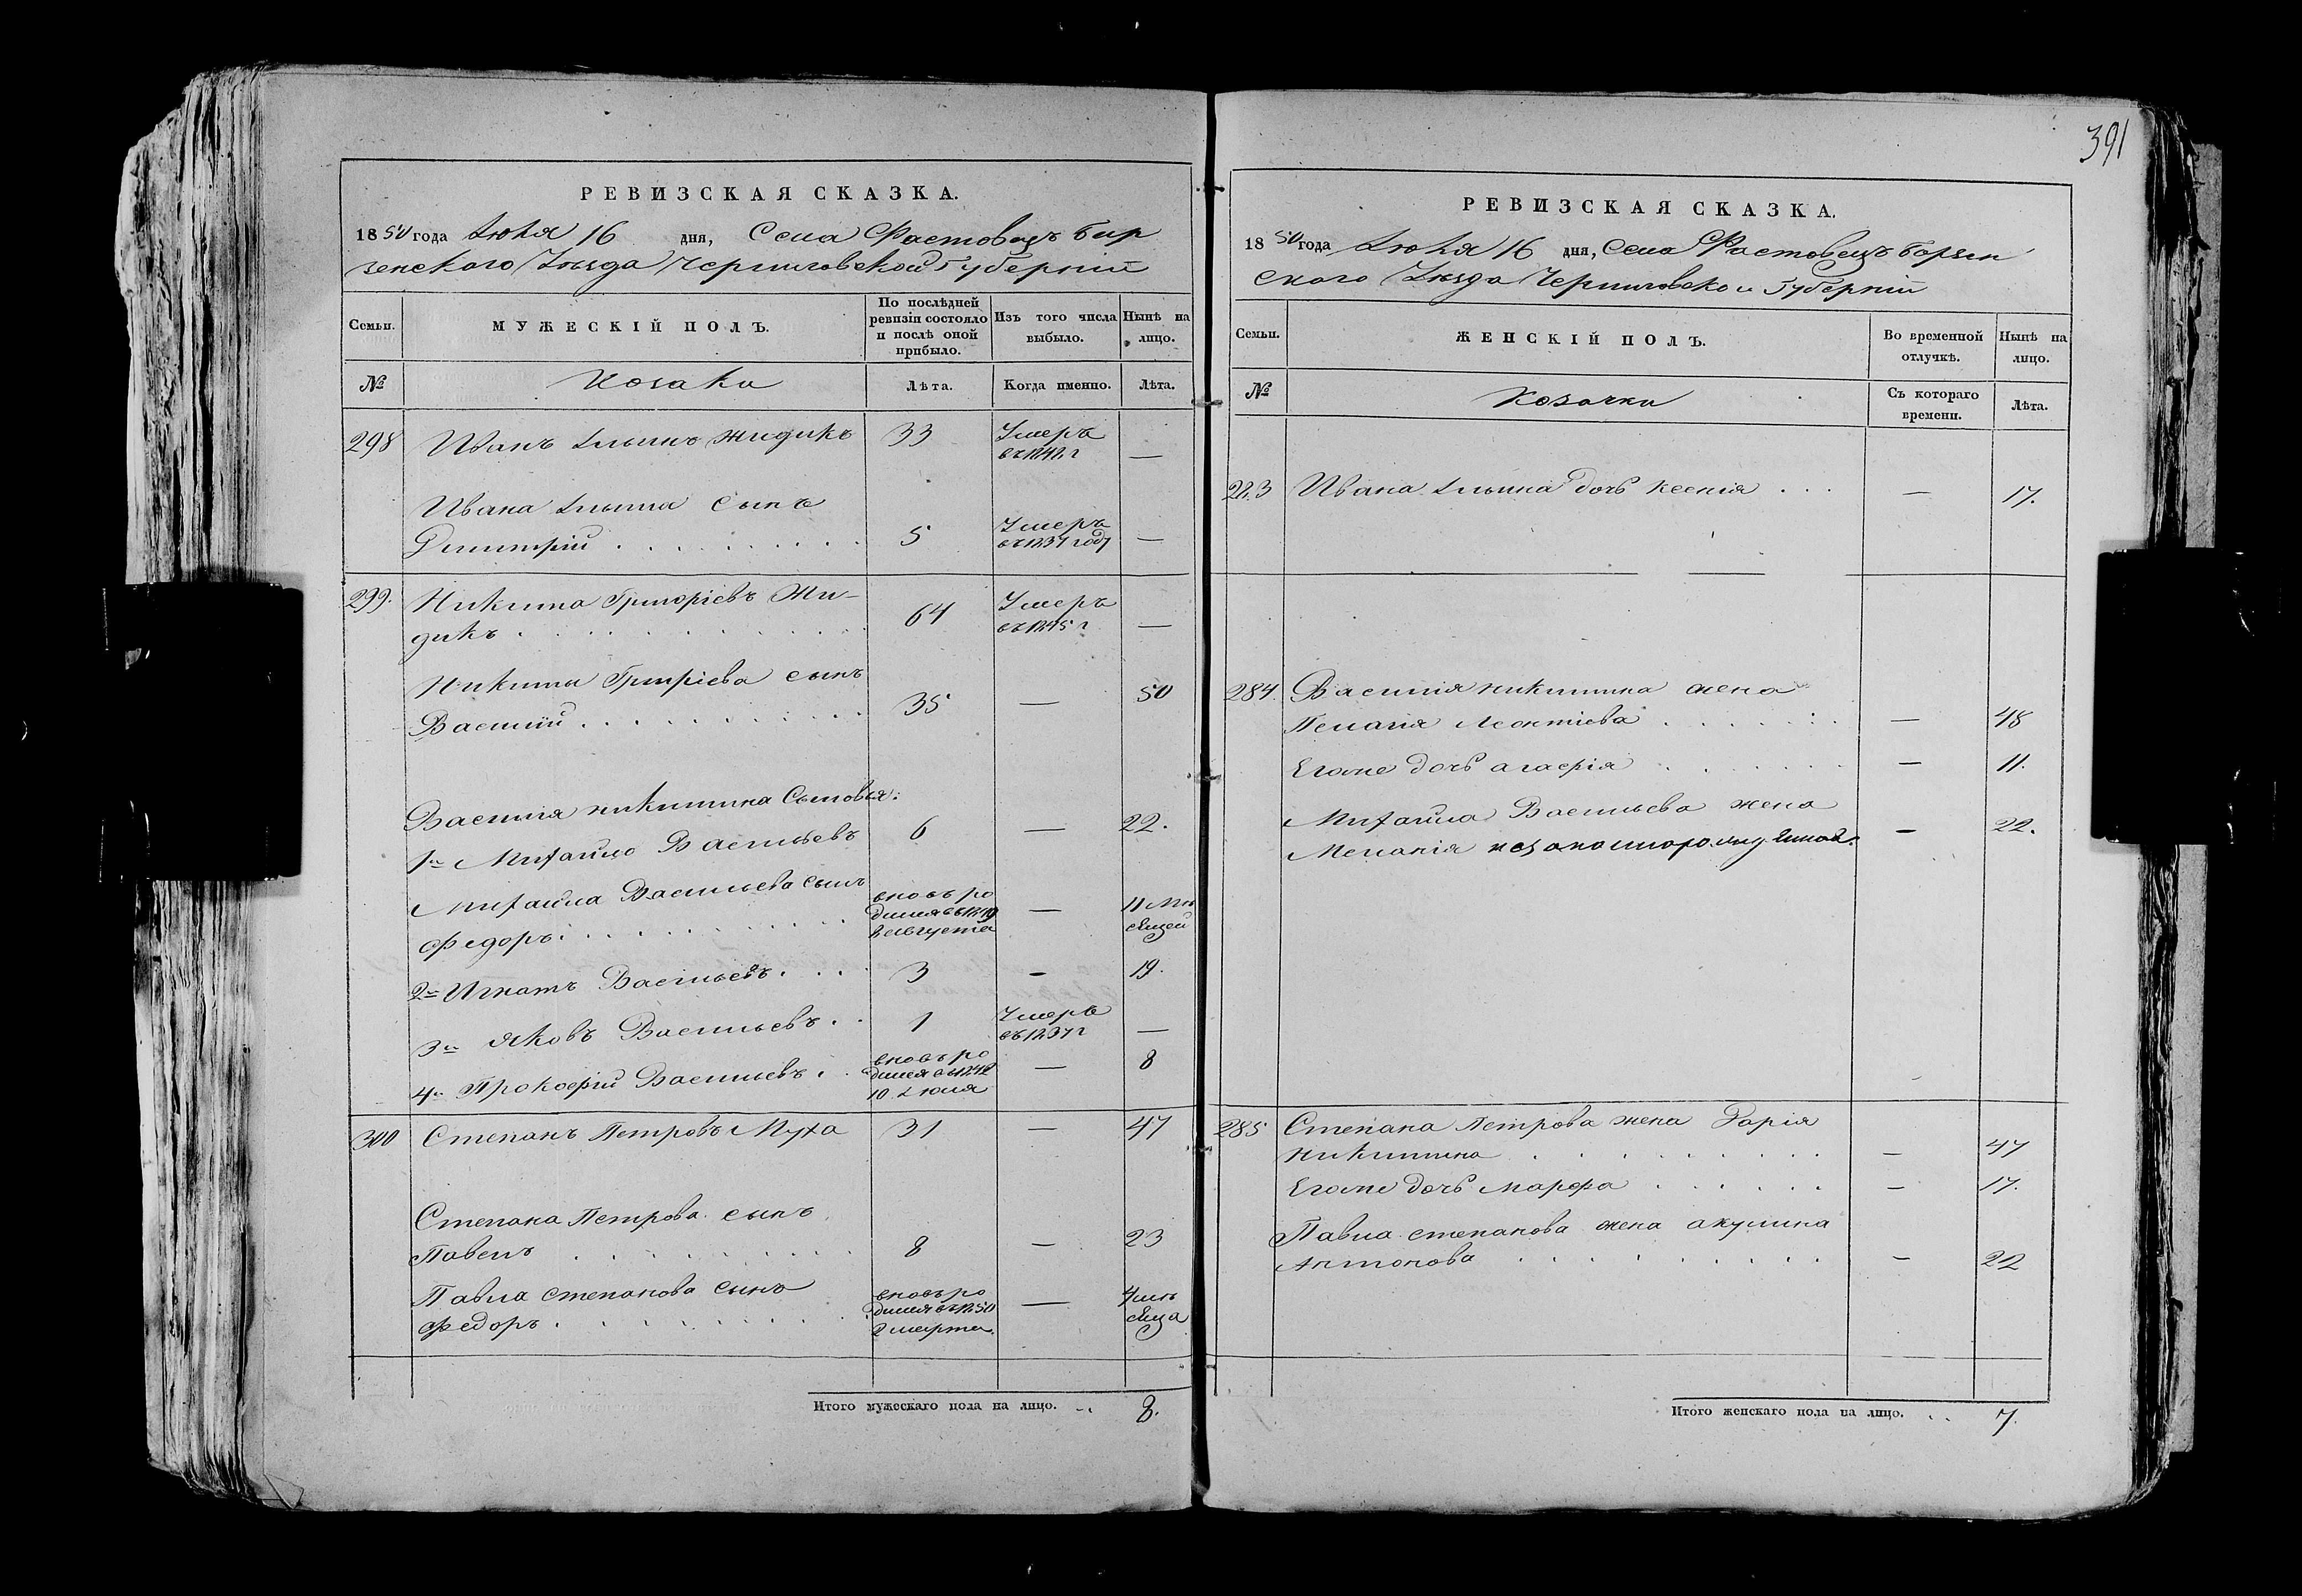 391
РЕВИЗСКАЯ СКАЗКА.
1850 года Іюля 16 дня, Села Фастовецъ Бор
зенского Уѣзда Черниговской Губерніи
Семьи. МУЖЕСКІЙ ПОЛЪ. По послѣдней ревизіи состояло и послѣ оной прибыло. Изъ того числа выбыло. Нынѣ на лицо.
№ Козаки Лѣта. Когда именно. Лѣта.
298 Иванъ Ильинъ Жидикъ 33 Умеръ въ 1842 г —
Ивана Ильина сынъ
Димитрій 5 Умеръ въ 1837 году —
299. Никита Григоріевъ Жи-
дикъ 64 Умеръ въ 1845 г —
Никиты Григоріева сынъ
Василій 35 — 50
Василія Никитина Сыновья:
1й Михайло Васильевъ 6 — 22.
Михайла Васильева сынъ
Федоръ вновь ро дился въ 1849 августа — 11 мѣ сяцей
2й Игнатъ Васильевъ 3 — 19.
3й Яковъ Васильевъ 1 Умеръ въ 1837 г —
4й Прокофій Васильевъ вновь ро дился въ 1842 10 Іюля — 8
300 Степанъ Петровъ Муха 31 — 47
Степана Петрова сынъ
Павелъ 8 — 23
Павла Степанова сынъ
Федоръ вновь ро дился въ 1850 2 марта — 4 мѣ сяца
Итого мужескаго пола на лицо. 8.
РЕВИЗСКАЯ СКАЗКА.
1850 года Іюля 16 дня, Села Фастовецъ Борзен
ского Уѣзда Черниговской Губерніи
Семьи. ЖЕНСКІЙ ПОЛЪ. Во временной отлучкѣ. Нынѣ на лицо.
№ Козачки Съ котораго времени. Лѣта.
283 Ивана Ильина дочь Ксенія — 17.
284. Василія Никитина жена
Пелагія Леонтіева — 48
Егоже дочь Агафія — 11.
Михайла Васильева жена
Меланія — 22.
285 Степана Петрова жена Дарія
Никитина — 47
Егоже дочь Марфа — 17.
Павла Степанова жена Акулина
Антонова — 22
Итого женскаго пола на лицо. 7.